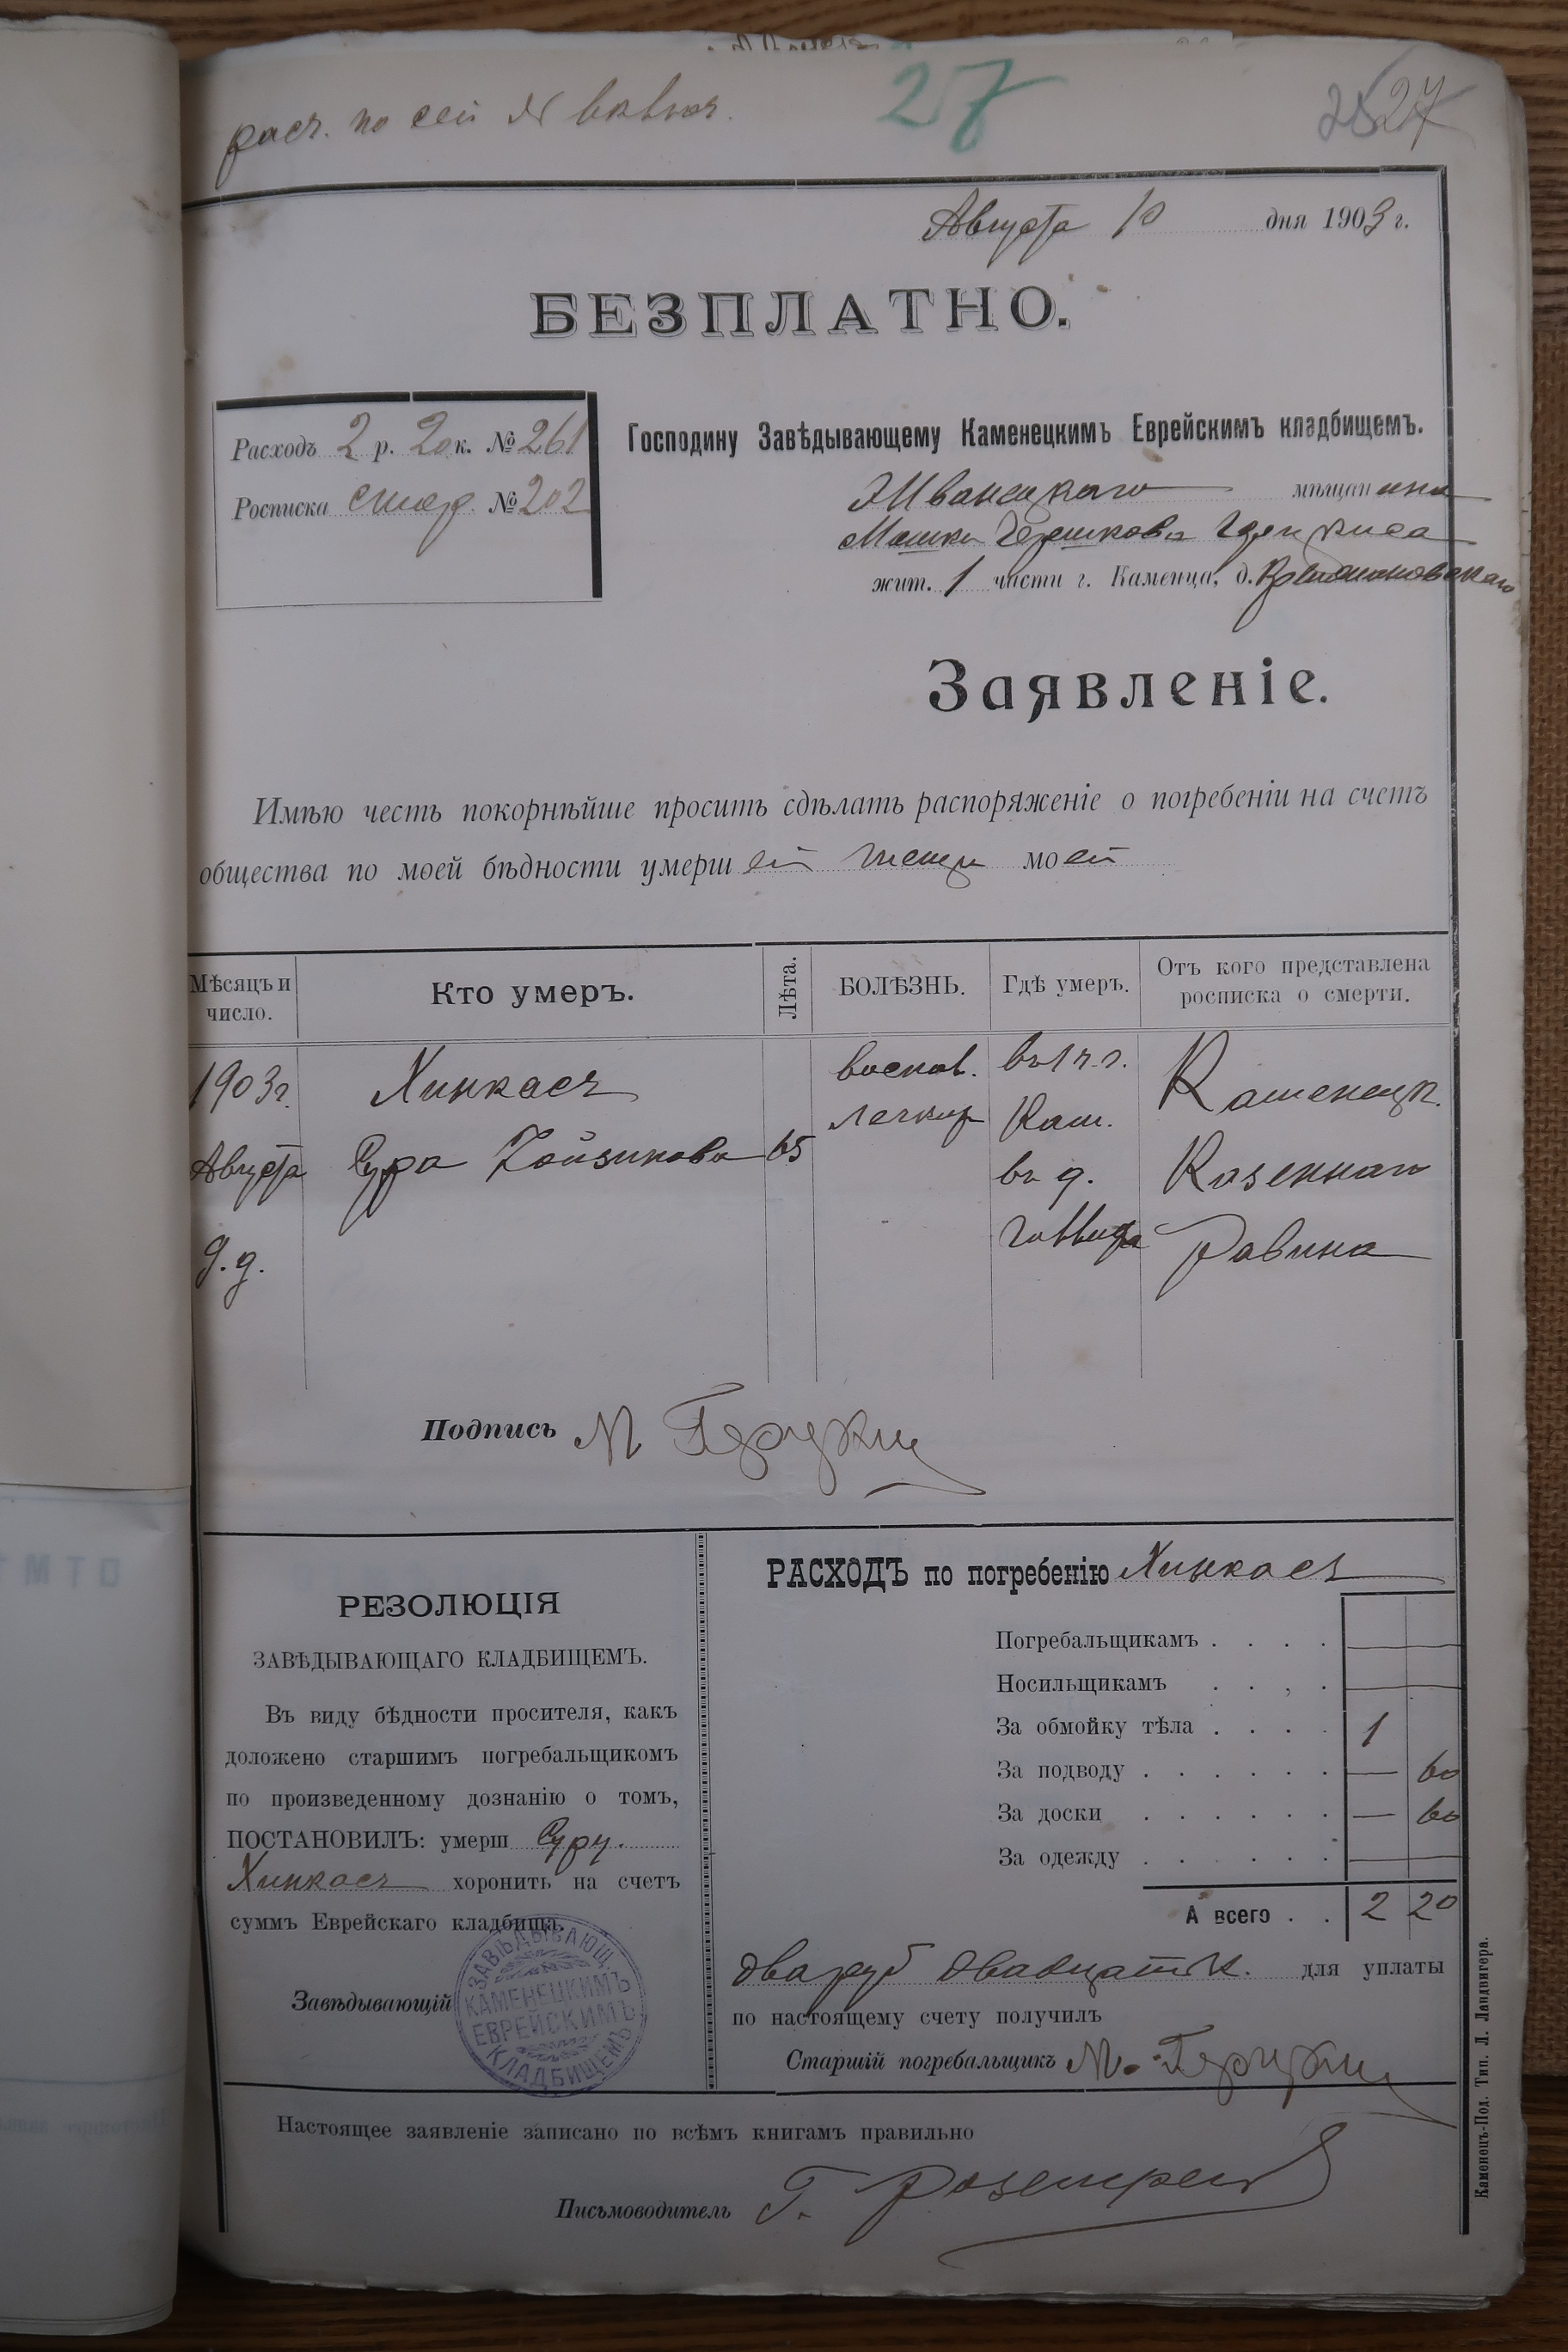 расч. по сей
27
27
Августа 10 дня 1903 г.
БЕЗПЛАТНО.
Расходъ 2 р. 20 к. № 261
Росписка стар. № 202
Господину Завѣдывающему Каменецкимъ Еврейскимъ кладбищемъ.
Жванецкаго мѣщанина
Мошки Гершкова
жит. 1 части г. Каменца, д.
Заявленіе.
Имѣю честь покорнѣйше просить сдѣлать распоряженіе о погребеніи на счетъ
общества по моей бѣдности умершей тещи моей
Мѣсяцъ и число.
Кто умеръ.
Лѣта.
БОЛѢЗНЬ.
Гдѣ умеръ.
Отъ кого представлена росписка о смерти.
1903 г. Августа 9 д.
Хинкаст
Сура 65
воспал. легких
въ 1 ч. г. Кам. въ д.
Каменецк. Казеннаго Равина
Подпись М
РЕЗОЛЮЦІЯ
ЗАВѢДЫВАЮЩАГО КЛАДБИЩЕМЪ.
Въ виду бѣдности просителя, какъ
доложено старшимъ погребальщикомъ
по произведенному дознанію о томъ,
ПОСТАНОВИЛЪ: умерш Суру
Хинкаст хоронить на счетъ
суммъ Еврейскаго кладбища.
Завѣдывающій
ЗАВѢДЫВАЮЩ.
КАМЕНЕЦКИМЪ
ЕВРЕЙСКИМЪ
КЛАДБИЩЕМЪ
РАСХОДЪ по погребенію Хинкаст
Погребальщикамъ . . . . —
Носильщикамъ . . . . —
За обмойку тѣла . . . . 1
За подводу . . . . . . — 60
За доски . . . . . . — 60
За одежду . . . . . . —
А всего . . 2 20
два руб двадцать к. для уплаты
по настоящему счету получилъ
Старшій погребальщикъ М.
Настоящее заявленіе записано по всѣмъ книгамъ правильно
Письмоводитель Г.
Каменецъ-Под. Тип. Л. Ландвигера.